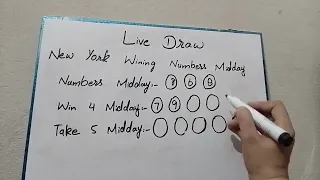 Live Draw
New York Wining Numbers Midday
Numbers Midday:- 7 6 8
Win 4 Midday:- 7 9
Take 5 Midday:-